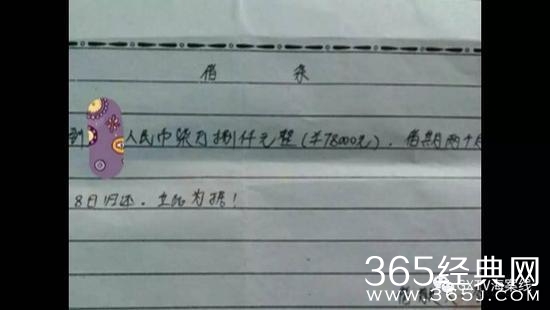 借 条
到 人民币柒万捌仟元整(¥78000元),借期两个月
8日归还,立此为据!
365经典网
www.365J.com